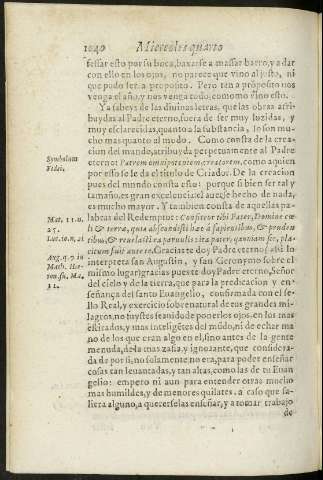 1040 Miercoles quarto
fessar esto por su boca, baxarse a massar barro, y a dar
con ello en los ojos, no parece que vino al justo, ni
que pudo ser a proposito. Pero tan a proposito nos
venga el año, y nos venga todo, como nos vino esto.
Ya sabeys de las diuinas letras, que las obras atri
buydas al Padre eterno, fuera de ser muy luzidas, y
muy esclarecidas, quanto a la substancia, lo son mu-
cho mas quanto al modo. Como consta de la crea-
cion del mundo, atribuyda perpetuamente al Padre
Symbolum
Fidei.
eterno: Patrem omnipotentem creatorem, como a quien
por esso se le da el titulo de Criador. De la creacion
pues del mundo consta esto: porque si bien ser tal y
tamaño, es gran excelencia: el auerle hecho de nada,
es mucho mayor. Y tambien consta de aquellas pa-
Mat. 11. n.
25.
Luc. 10. n. 21
labras del Redemptor: Confiteor tibi Pater, Domine cœ-
li & terræ, quia abscondisti hæc à sapientibus, & pruden
tibus, & reuelasti ea paruulis: ita pater, quoniam sic, pla-
citum fuit ante te. Gracias te doy Padre eterno (assi lo
Aug. q. 9 in
Math.
interpreta san Augustin, y san Geronymo sobre el
mismo lugar) gracias pues te doy Padre eterno, Señor
del cielo y de la tierra, que para la predicacion y en-
señança del santo Euangelio, confirmada con el se-
llo Real, y exercicio sobrenatural de tus grandes mi-
lagros, no fuystes seruido de poner los ojos, en los mas
estirados, y mas inteligẽtes del mũdo, ni de echar ma
no de los que eran algo en el, sino antes de la gente
menuda, de la mas zafia, y ignorante, que considera-
da de por si, no solamente no era, para poder enseñar
cosas tan leuantadas, y tan altas, como las de tu Euan
gelio: empero ni aun para entender otras mucho
mas humildes, y de menores quilates, a caso que sa-
liera alguno, a querer selas enseñar, y a tomar trabajo
de